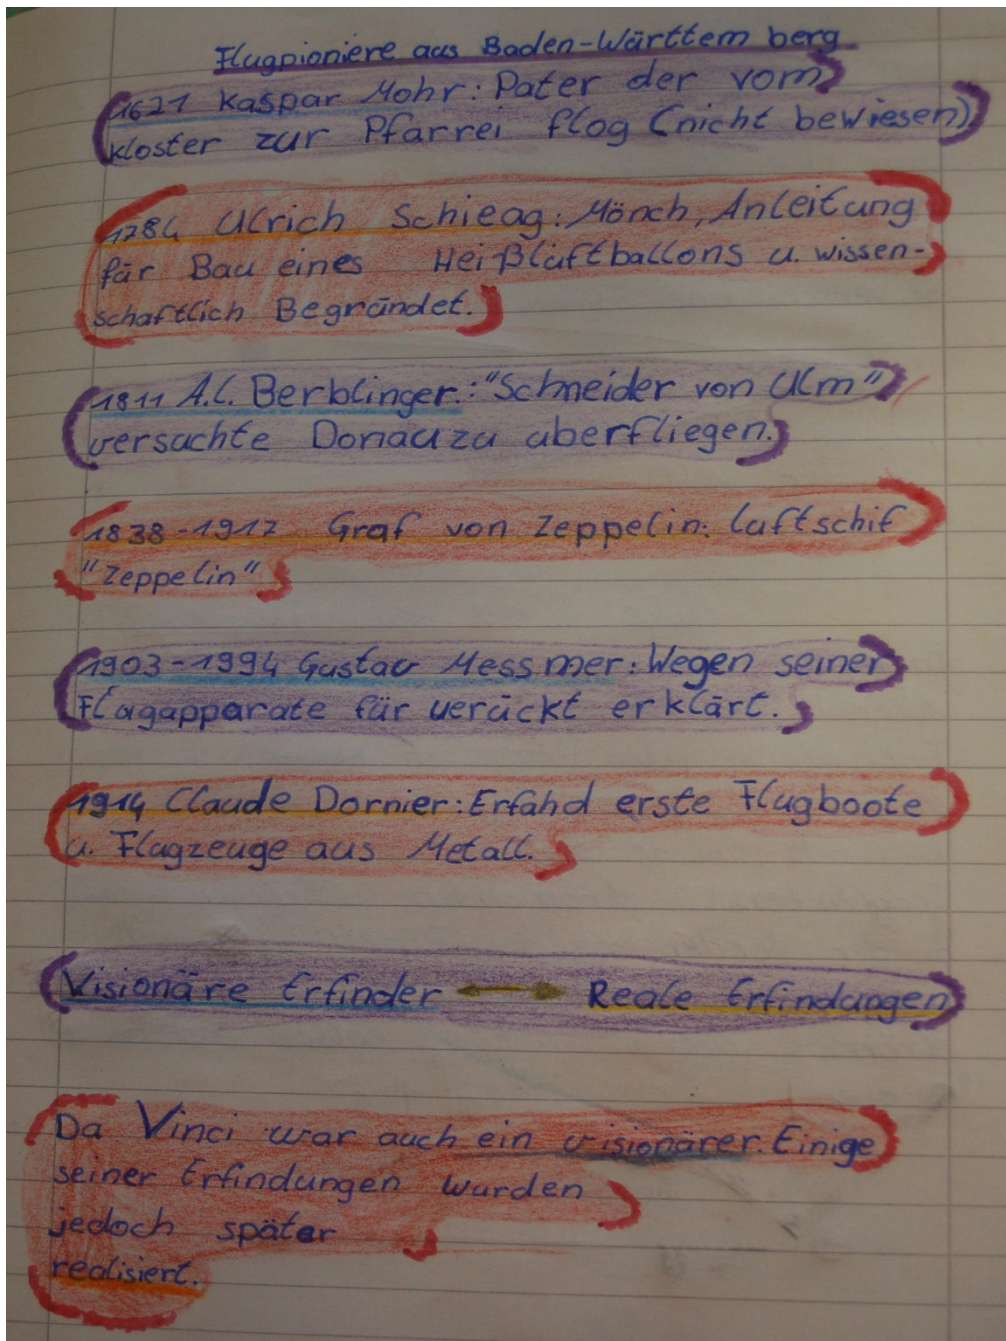 Flugpioniere aus Baden-Württemberg
1621 Kaspar Mohr: Pater der vom
Kloster zur Pfarrei flog (nicht bewiesen)
1784 Ulrich Schieag: Mönch, Anleitung
für Bau eines Heißluftballons u. wissen-
schaftlich Begründet.
1811 A.L. Berblinger.: "Schneider von Ulm"
versuchte Donau zu uberfliegen.
1838-1917 Graf von Zeppelin: Luftschif
"Zeppelin"
1903-1994 Gustav Messmer: Wegen seiner
Flugapparate für verückt erklärt.
1914 Claude Dornier: Erfahd erste Flugboote
u. Flugzeuge aus Metall.
Visionäre Erfinder ↔ Reale Erfindungen
Da Vinci war auch ein visionärer. Einige
seiner Erfindungen wurden
jedoch später
realisiert.